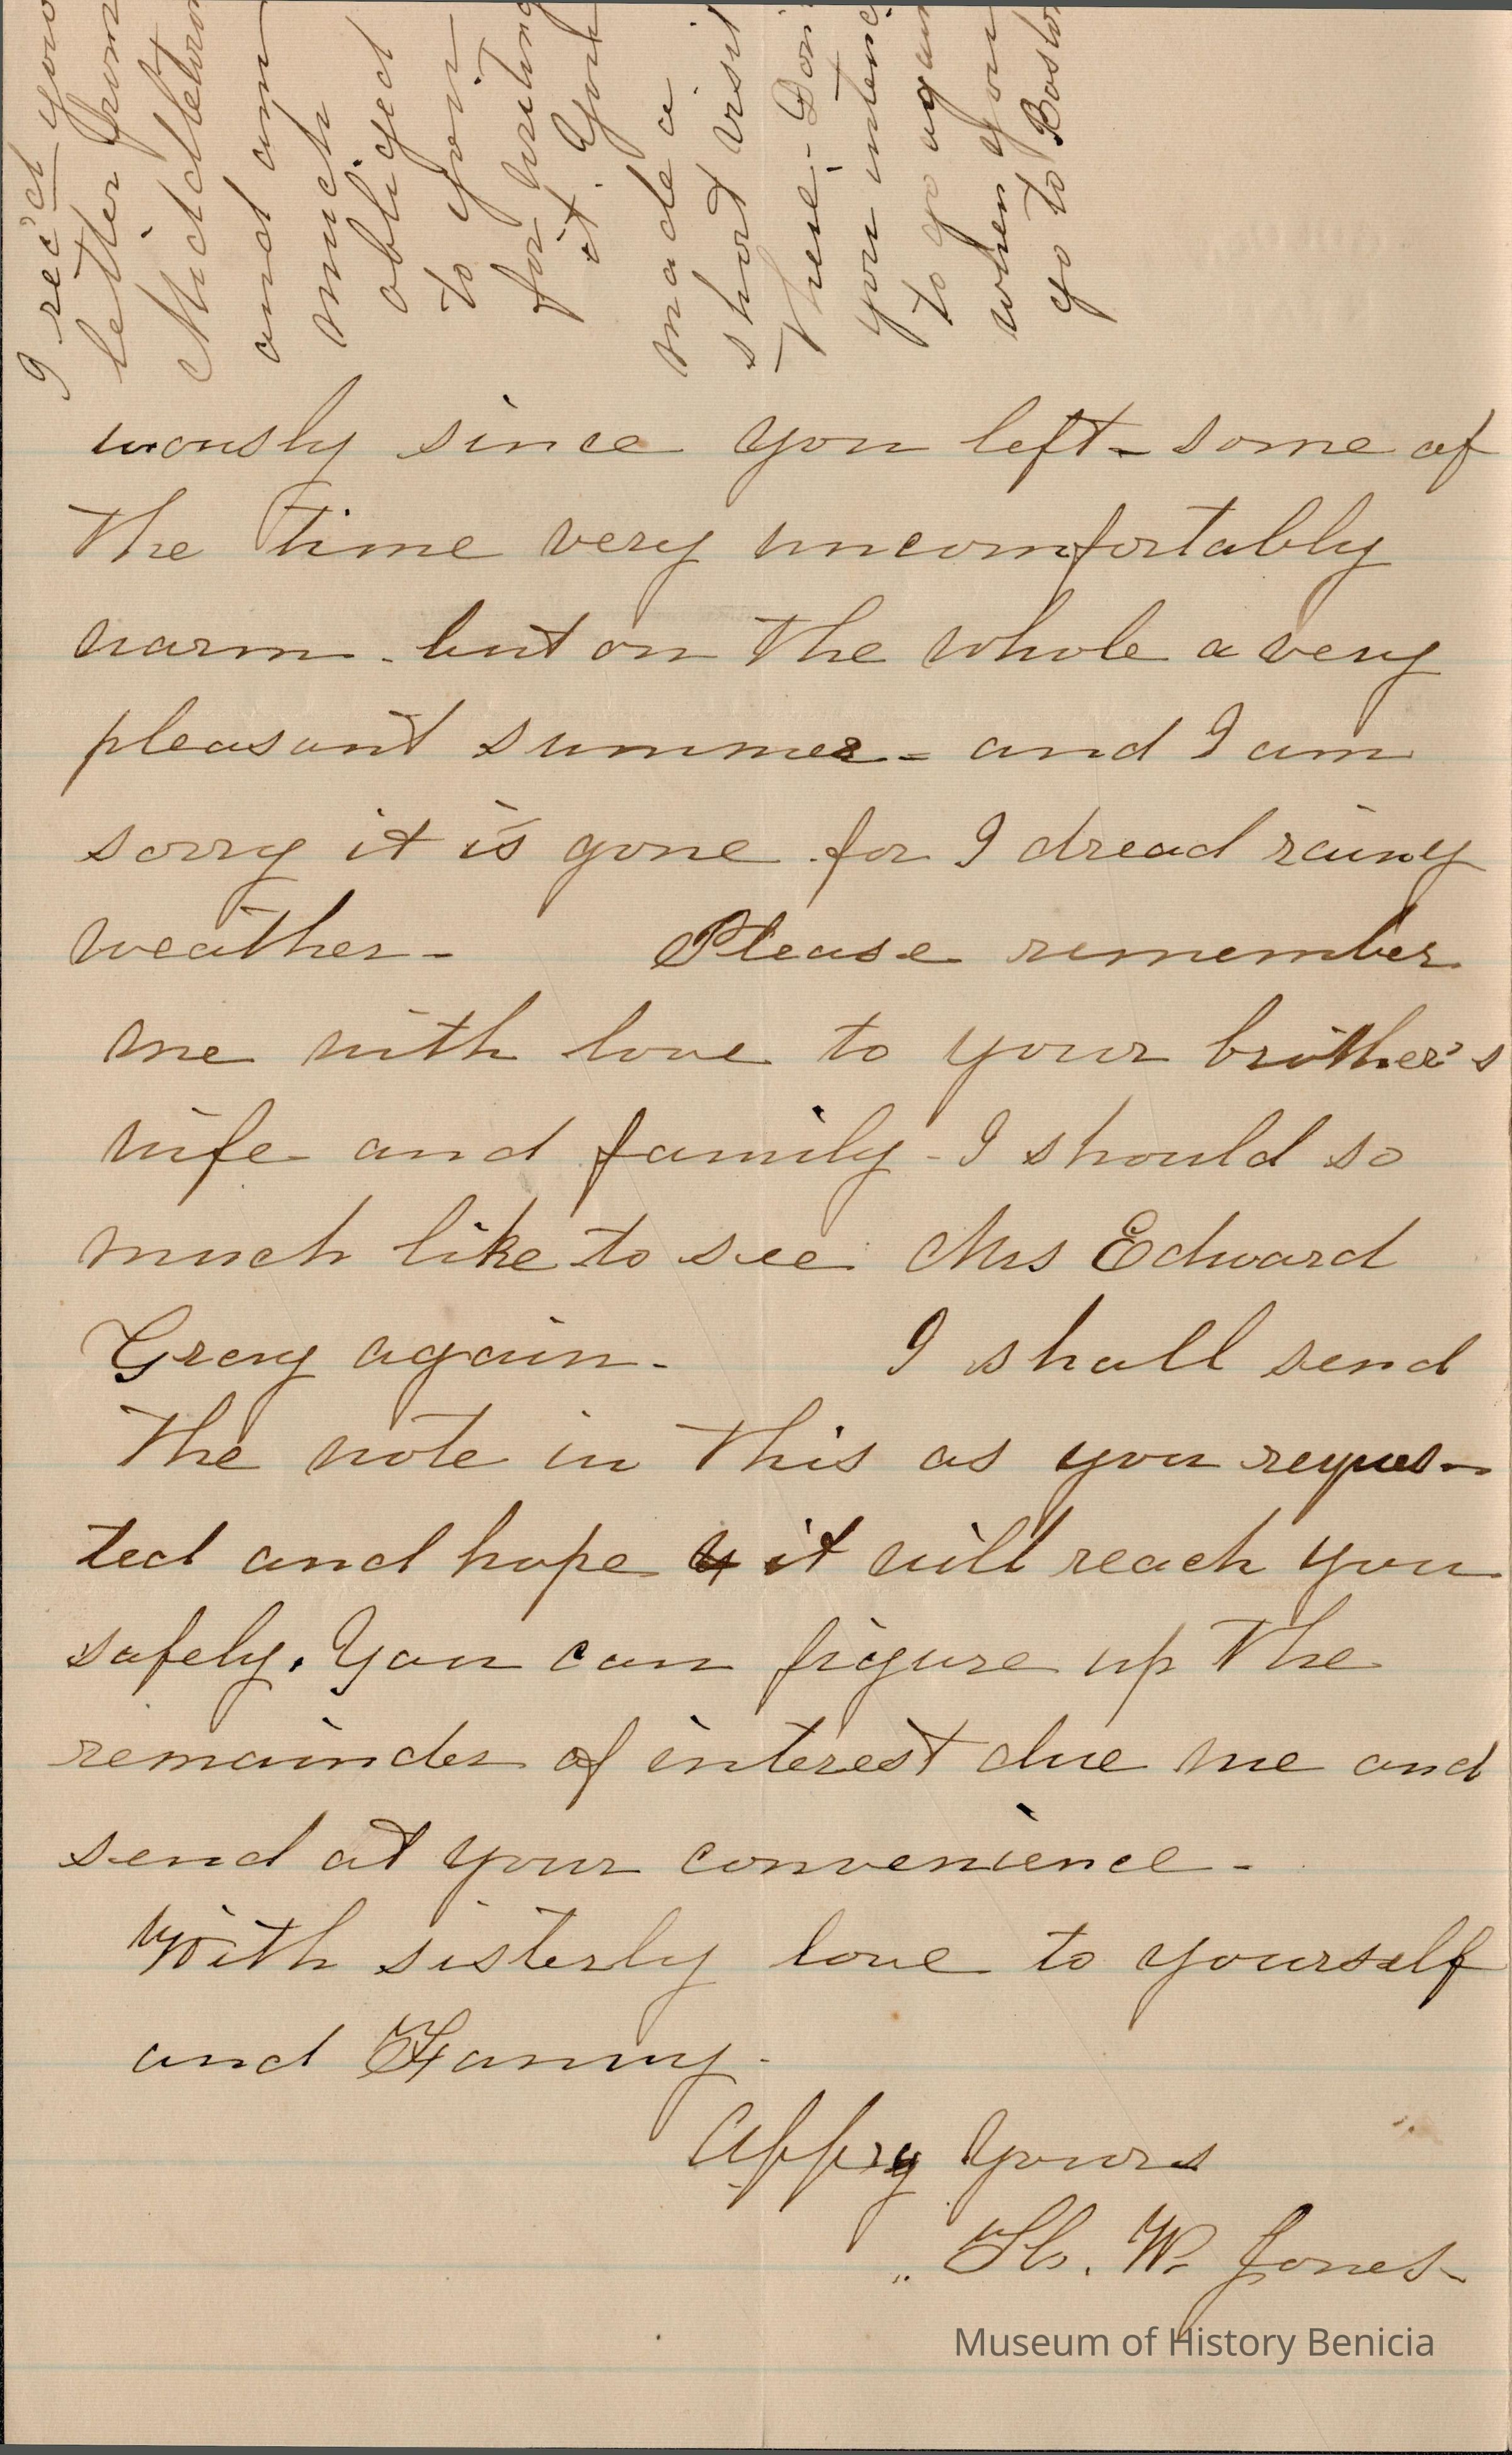 I rec'd your
letter from
Middletown
and am
much
obliged
to you
for writing
it. You
made a
short visit
there - Don't
you intend
to go again
when you
go to Boston
uously since you left - some of
the time very uncomfortably
warm - but on the whole a very
pleasant summer - and I am
sorry it is gone for I dread rainy
weather - Please remember
me with love to your brother's
wife and family - I should so
much like to see Mrs Edward
Gray again - I shall send
the note in this as you reques-
ted and hope it will reach you
safely. You can figure up the
remainder of interest due me and
send at your convenience -
With sisterly love to yourself
and Fanny -
Affry Yours
W. Jones -
Museum of History Benicia